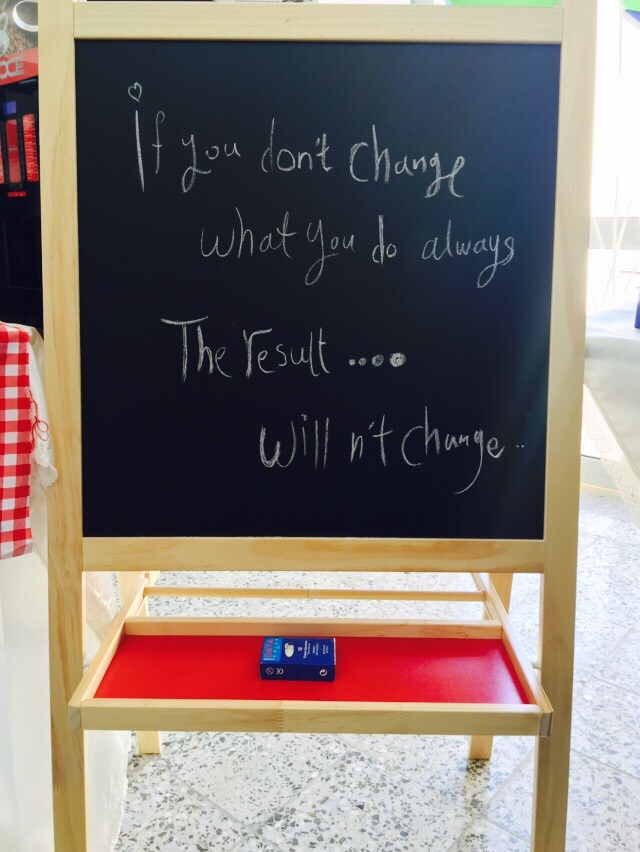 If you don't change
what you do always
The result ....
will n't change..